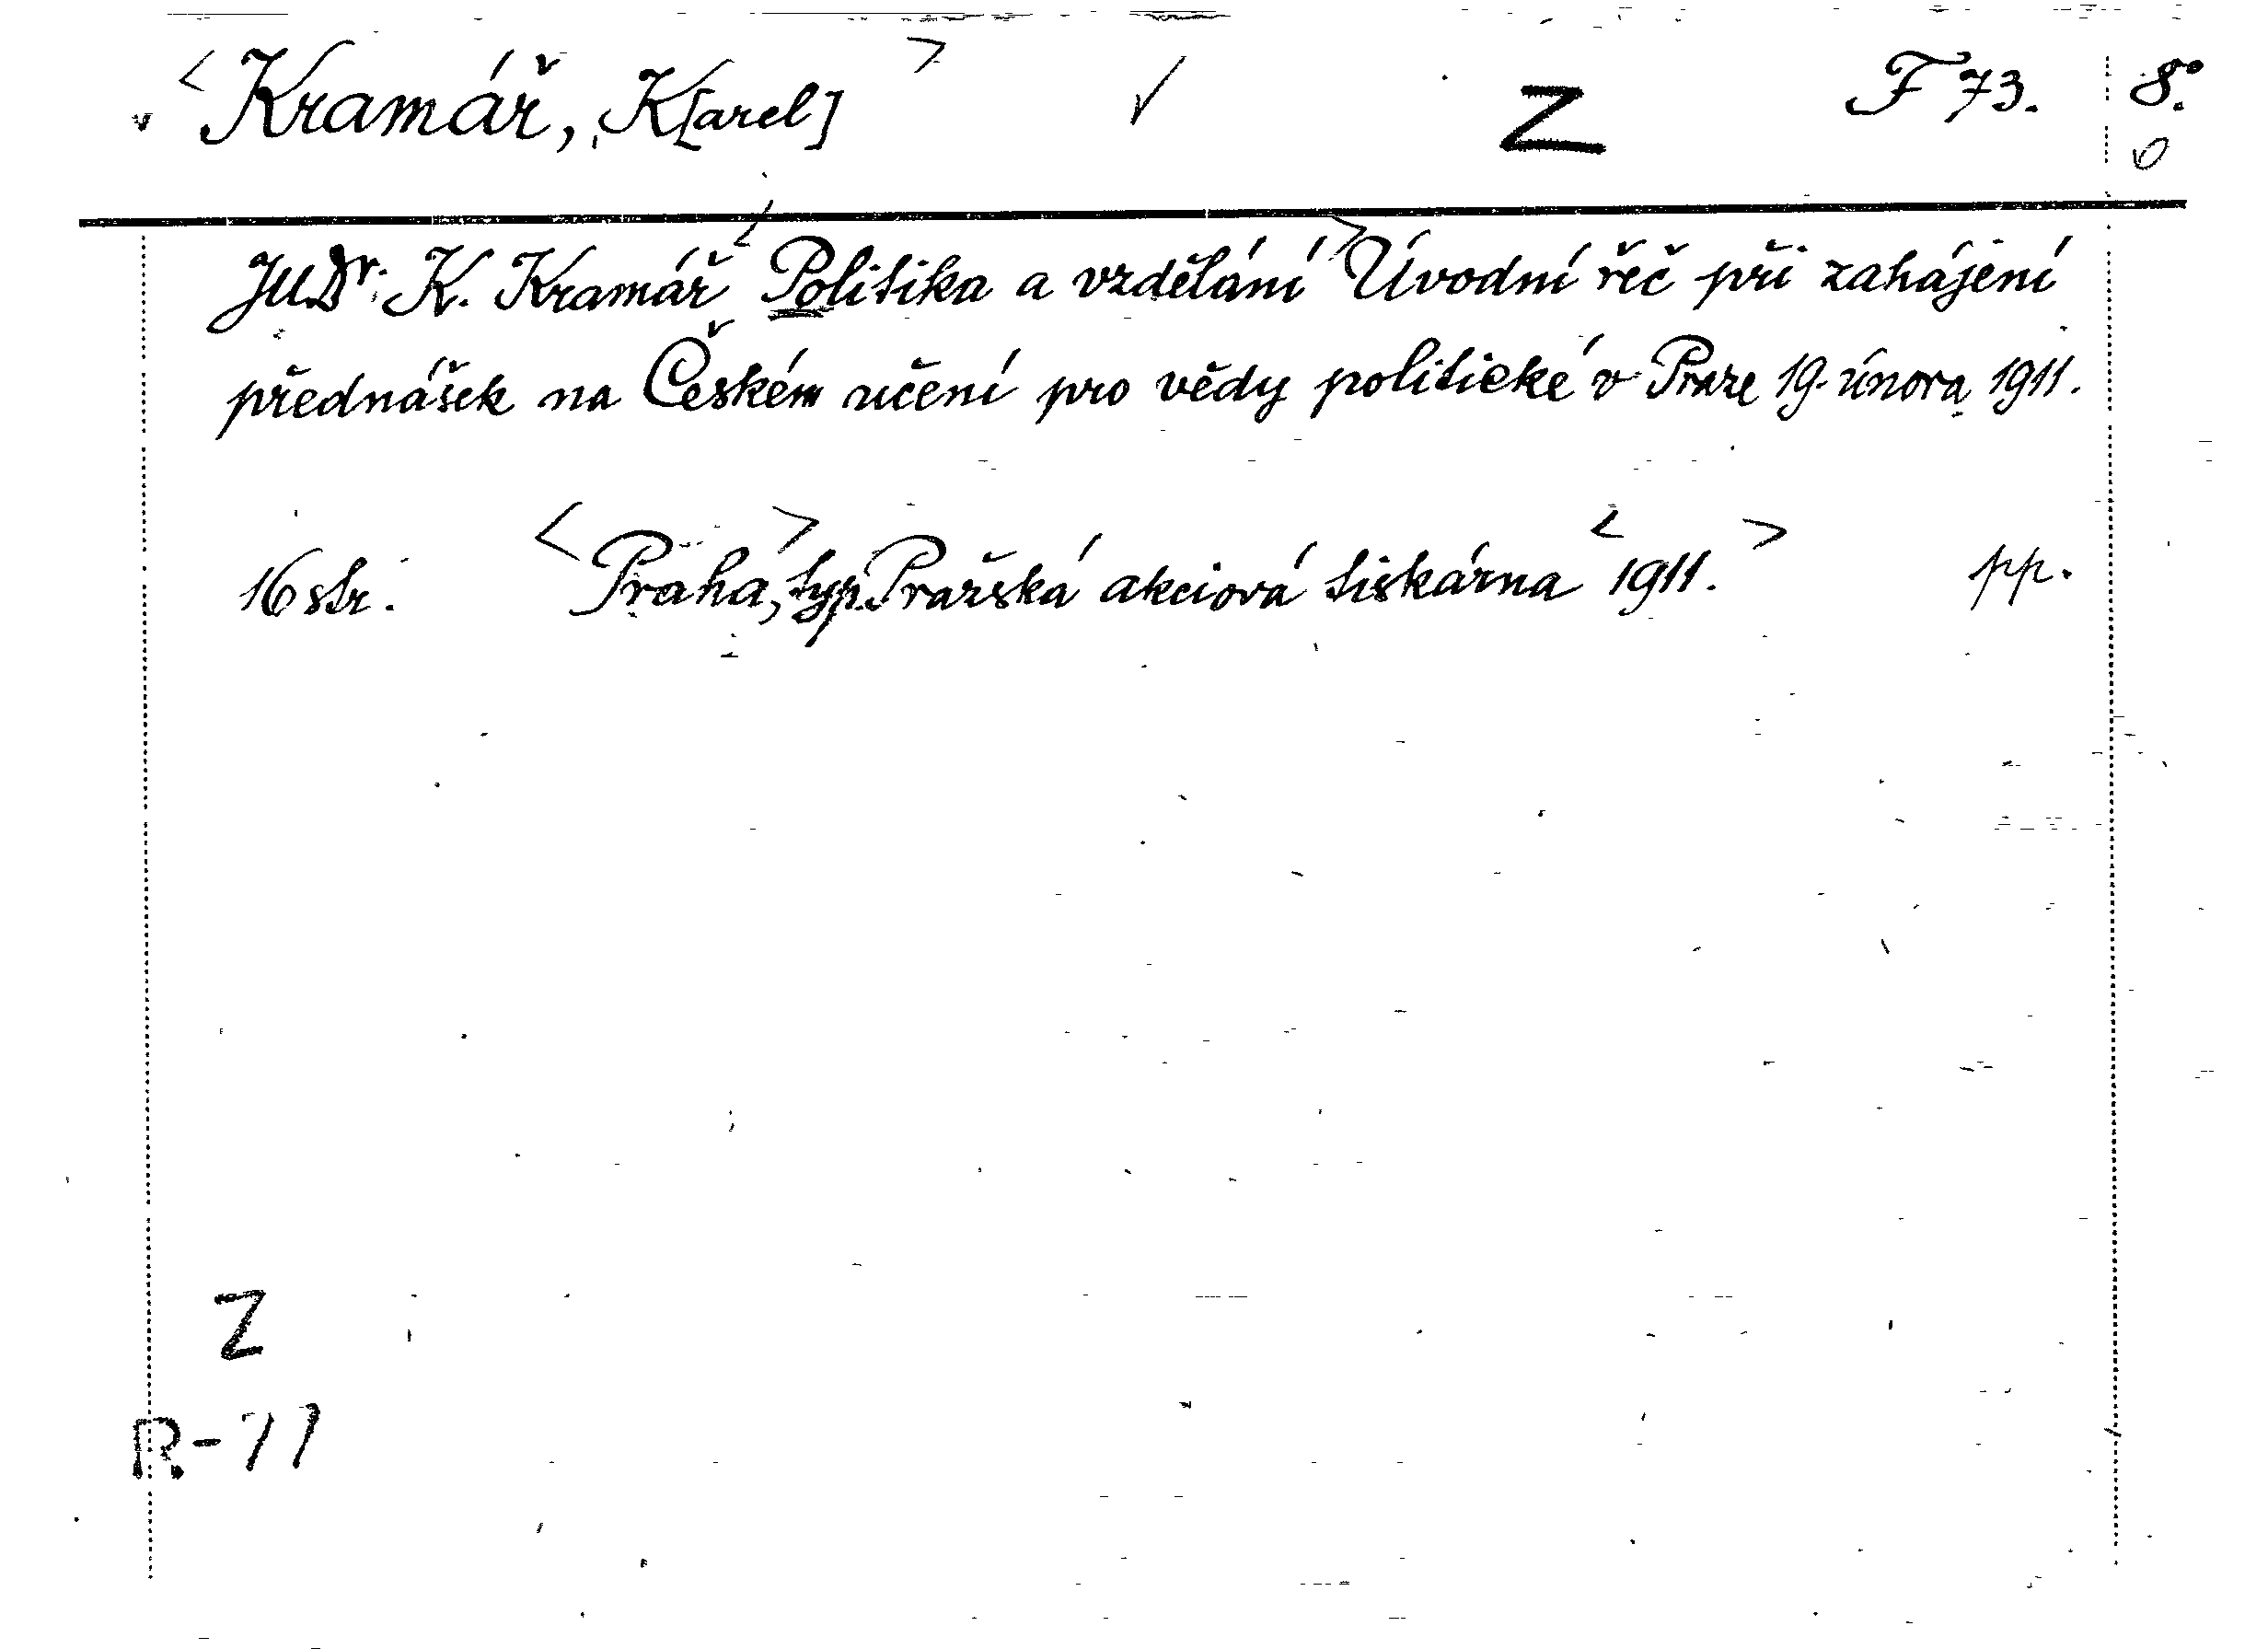 <Kramář, K[arel]> ✓ Z F 73. 8°.
JUDr. K. Kramář <Politika a vzdělání> Úvodní řeč při zahájení
přednášek na Českém učení pro vědy politické v Praze 19. února 1911.
16 str. <Praha,> typ. Pražská akciová tiskárna <1911.> pp.
Z
R-77